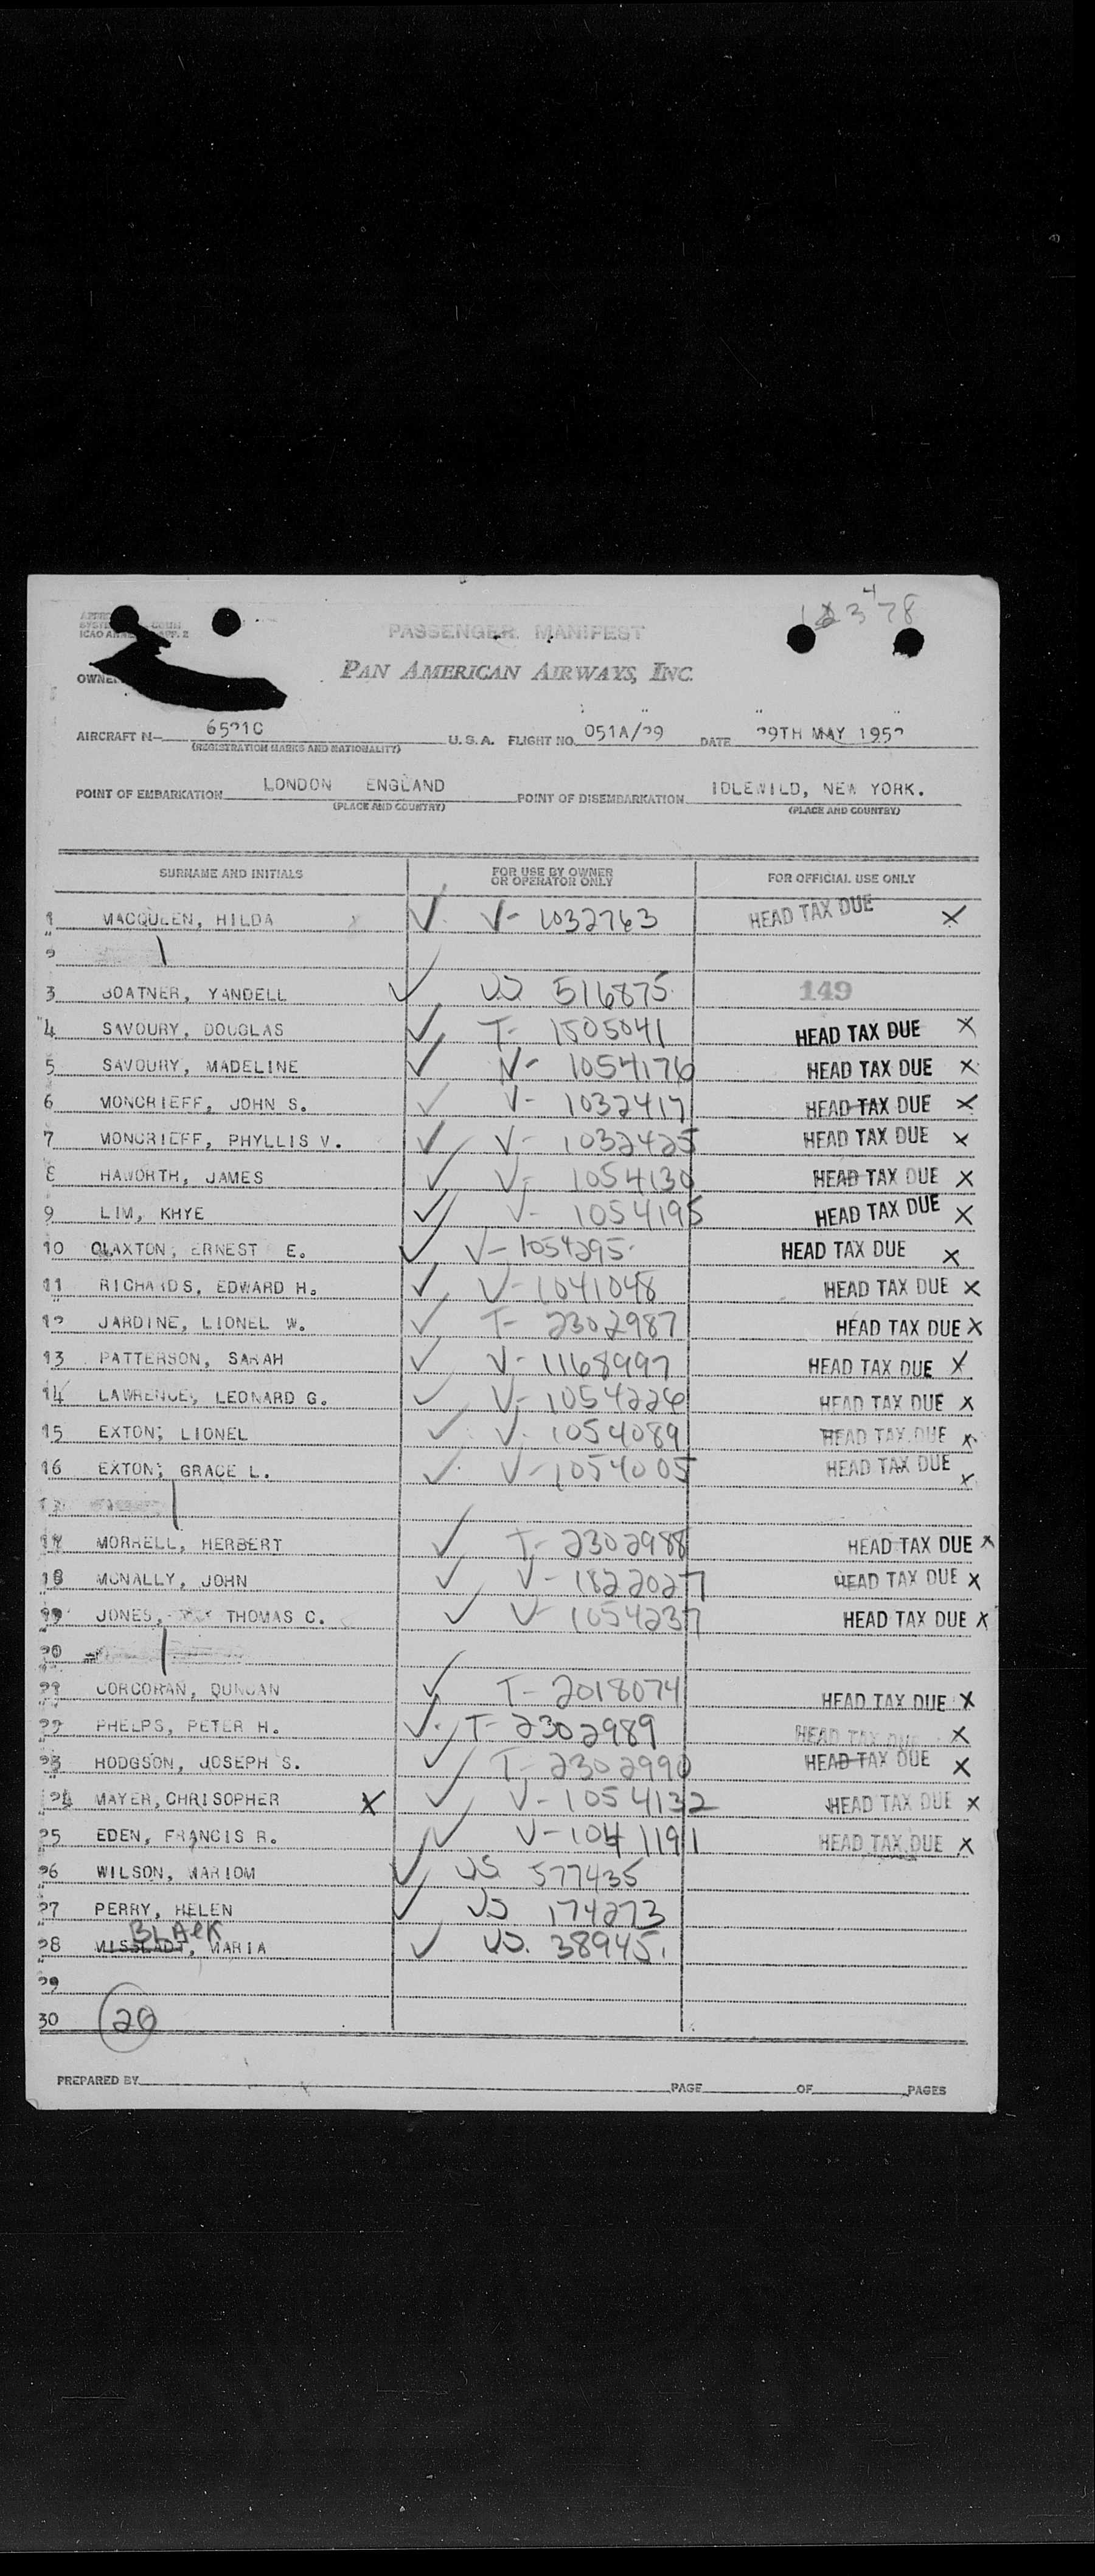 4
1 3 78
ICAO APP. 2
PASSENGER MANIFEST
PAN AMERICAN AIRWAYS, INC.
OWNE
AIRCRAFT N— 6521C U.S.A. FLIGHT NO. 051A/29 DATE 29TH MAY 1952
(REGISTRATION MARKS AND NATIONALITY)
POINT OF EMBARKATION LONDON ENGLAND POINT OF DISEMBARKATION IDLEWILD, NEW YORK.
(PLACE AND COUNTRY) (PLACE AND COUNTRY)
SURNAME AND INITIALS FOR USE BY OWNER OR OPERATOR ONLY FOR OFFICIAL USE ONLY
1 MACQUEEN, HILDA ✓ V- 1032763 HEAD TAX DUE X
2
3 BOATNER, YANDELL ✓ US 516875 149
4 SAVOURY, DOUGLAS ✓ T- 1505041 HEAD TAX DUE X
5 SAVOURY, MADELINE ✓ V- 1054176 HEAD TAX DUE X
6 MONCRIEFF, JOHN S. ✓ V- 1032417 HEAD TAX DUE X
7 MONCRIEFF, PHYLLIS V. ✓ V- 1032425 HEAD TAX DUE X
8 HAWORTH, JAMES ✓ V- 1054130 HEAD TAX DUE X
9 LIM, KHYE ✓ V- 1054195 HEAD TAX DUE X
10 CLAXTON, ERNEST E. ✓ V- 1054295 HEAD TAX DUE X
11 RICHARDS, EDWARD H. ✓ V- 1041048 HEAD TAX DUE X
12 JARDINE, LIONEL W. ✓ T- 2302987 HEAD TAX DUE X
13 PATTERSON, SARAH ✓ V- 1168997 HEAD TAX DUE X
14 LAWRENCE, LEONARD G. ✓ V- 1054226 HEAD TAX DUE X
15 EXTON, LIONEL ✓ V- 1054089 HEAD TAX DUE X
16 EXTON, GRACE L. ✓ V- 1054005 HEAD TAX DUE X
17 MORRELL, HERBERT ✓ T- 2302988 HEAD TAX DUE X
18 MCNALLY, JOHN ✓ V- 1822027 HEAD TAX DUE X
19 JONES, THOMAS C. ✓ V- 1054237 HEAD TAX DUE X
20
21 CORCORAN, DUNCAN ✓ T- 2018074 HEAD TAX DUE X
22 PHELPS, PETER H. ✓ T- 2302989 HEAD TAX DUE X
23 HODGSON, JOSEPH S. ✓ T- 2302990 HEAD TAX DUE X
24 MAYER, CHRISOPHER X ✓ V- 1054132 HEAD TAX DUE X
25 EDEN, FRANCIS R. ✓ V- 1041191 HEAD TAX DUE X
26 WILSON, MARIOM ✓ US 577435
27 PERRY, HELEN ✓ US 174273
BLACK
28 MARIA ✓ US. 38945.
29
30 26
PREPARED BY PAGE OF PAGES